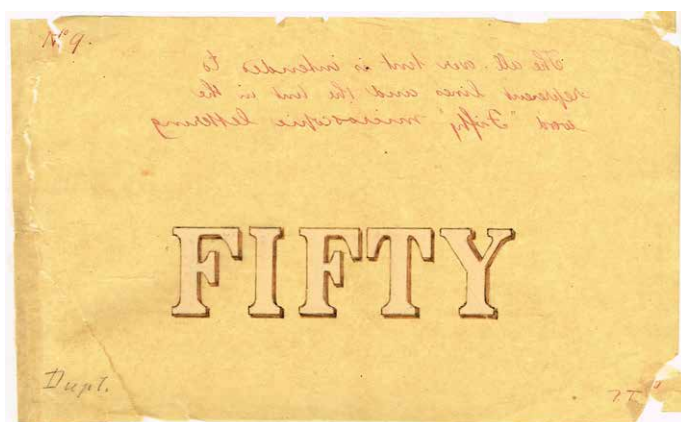 No 9.
The all over tint is intended to
represent lines and the tint in the
word "Fifty" microscopic lettering
FIFTY
Dupt.